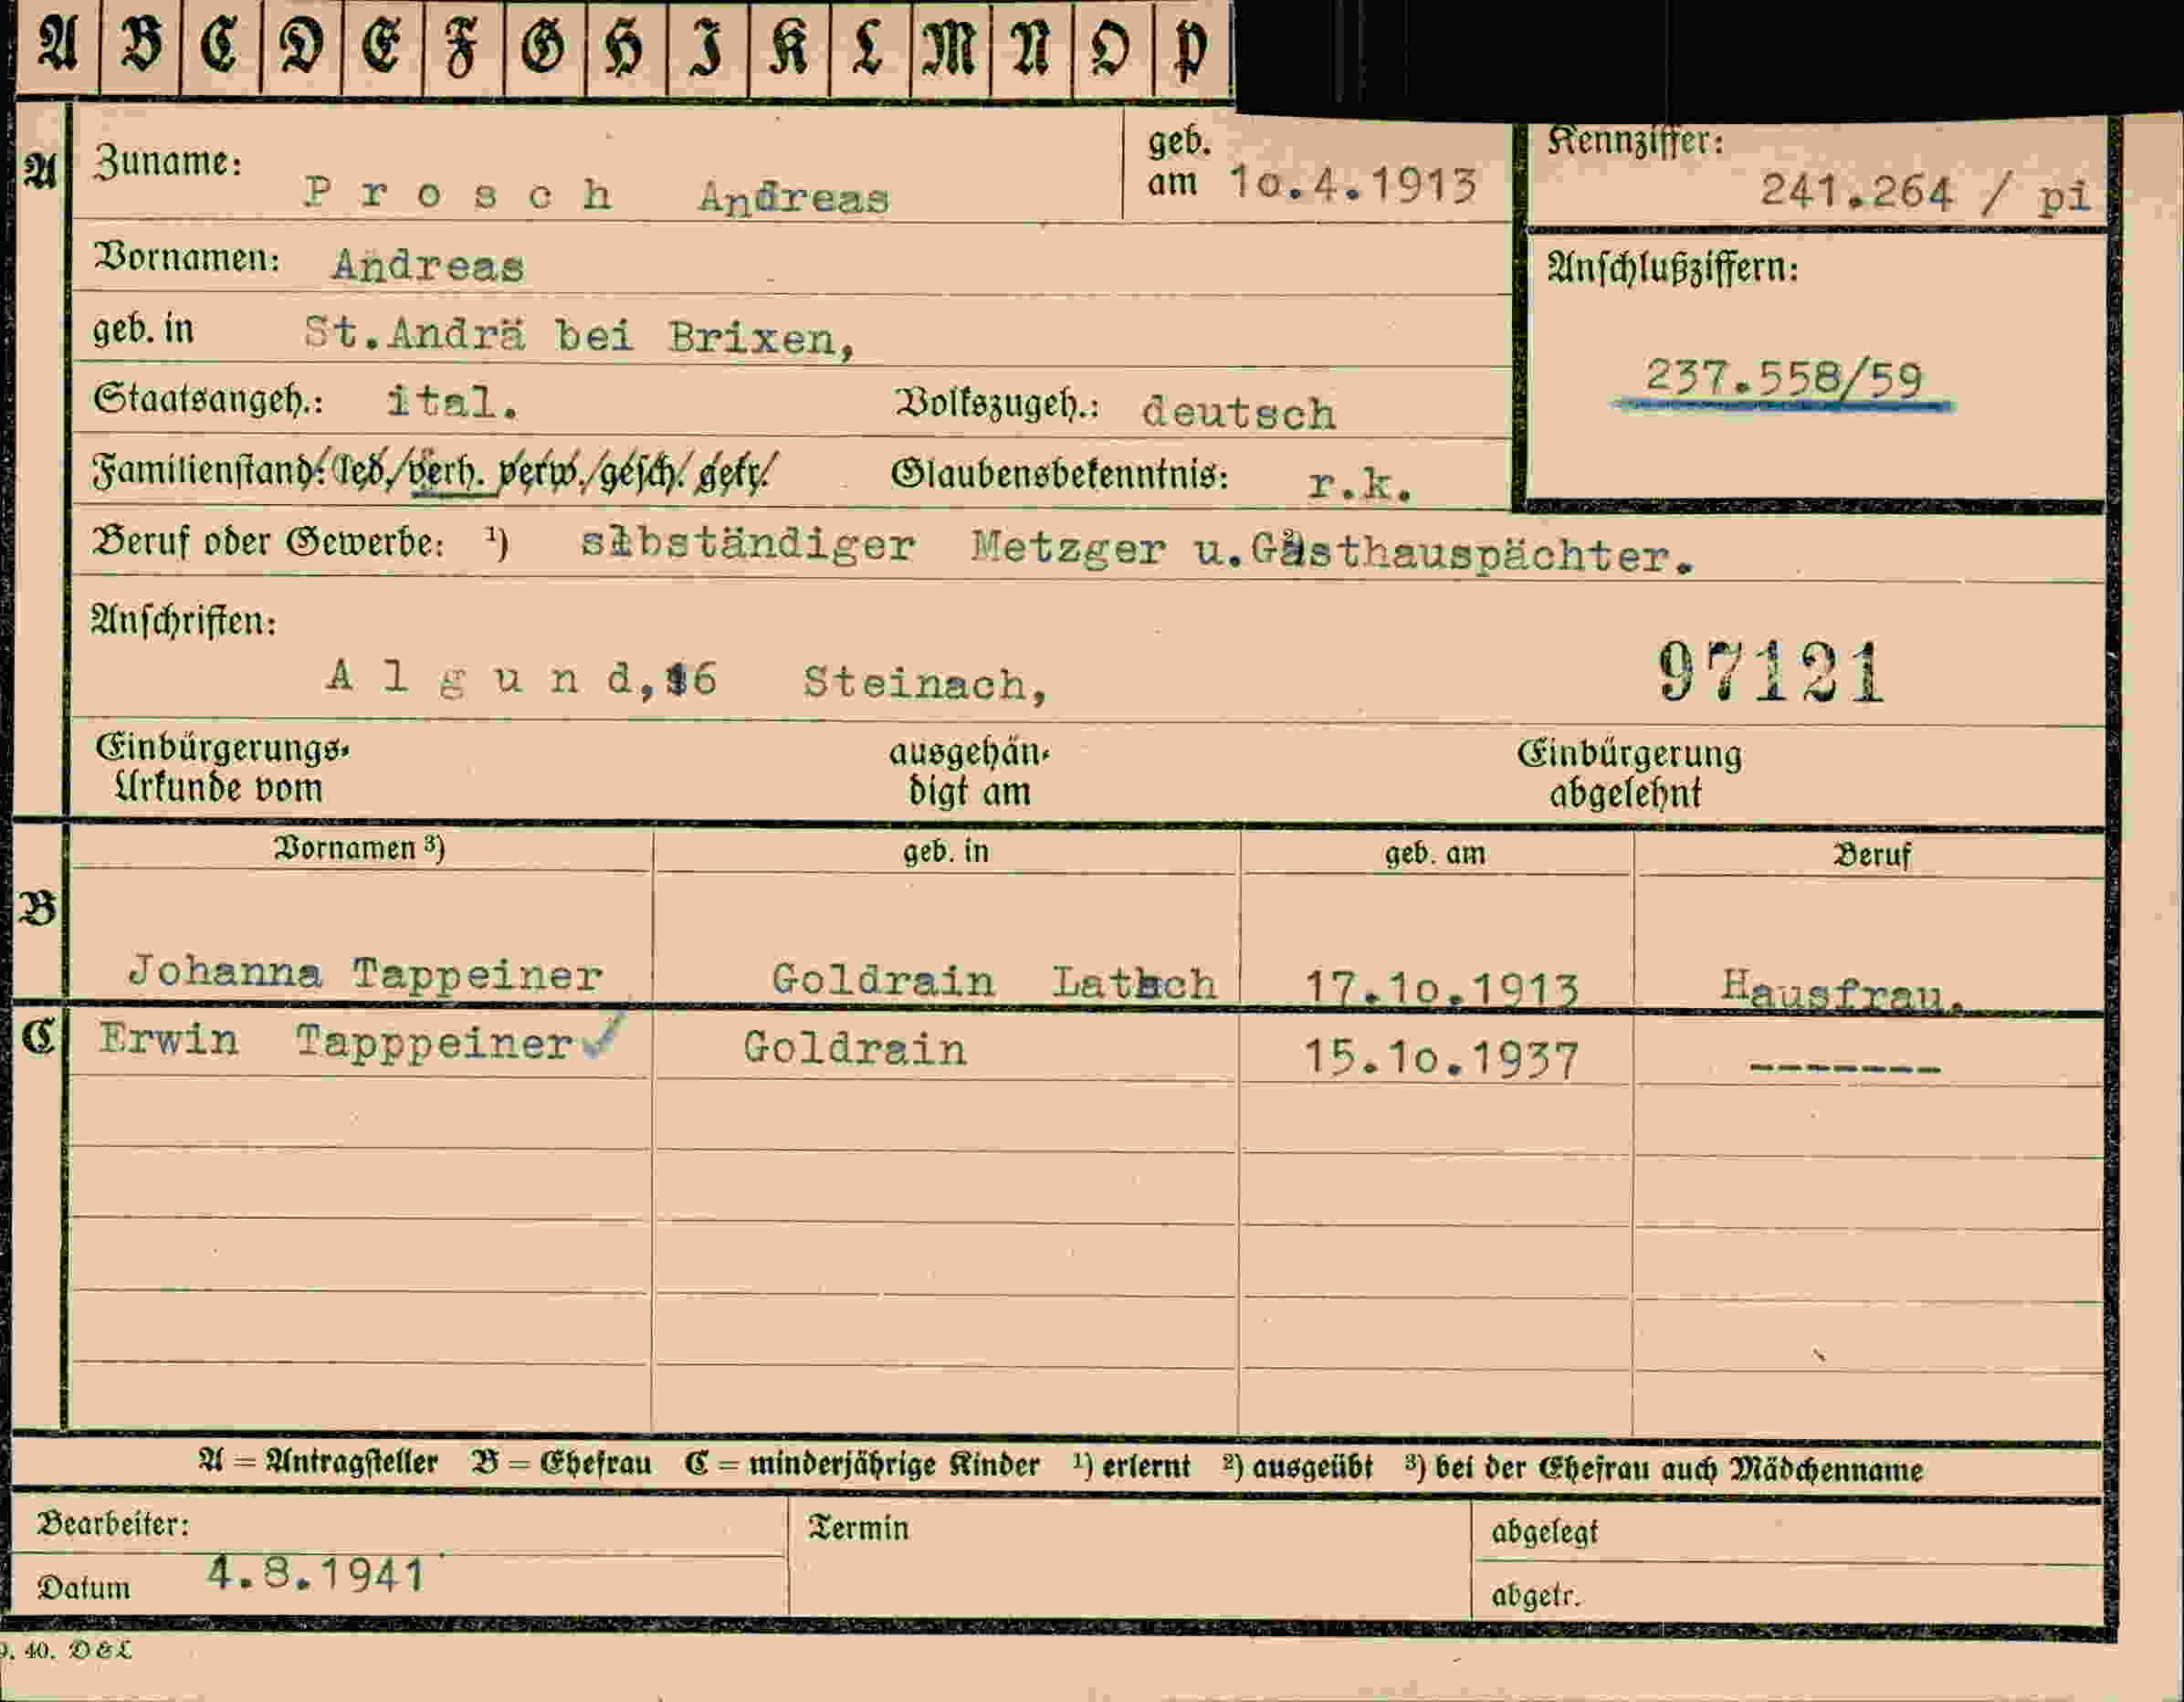 A B C D E F G H I K L M N O P
A Zuname: Prosch Andreas geb. am 1o.4.1913 Kennziffer: 241.264 / pi
Vornamen: Andreas
Anschlußziffern:
geb. in St.Andrä bei Brixen,
237.558/59
Staatsangeh.: ital. Volkszugeh.: deutsch
Familienstand: led./verh. verw./gesch. getr. Glaubensbekenntnis: r.k.
Beruf oder Gewerbe: ¹) slbständiger Metzger u.Gasthauspächter.
Anschriften:
Algund,16 Steinach, 97121
Einbürgerungs-
Urkunde vom
ausgehän-
digt am
Einbürgerung
abgelehnt
Vornamen ³) geb. in geb. am Beruf
B
Johanna Tappeiner Goldrain Latsch 17.1o.1913 Hausfrau.
C Erwin Tapppeiner Goldrain 15.1o.1937 -------
A = Antragsteller B = Ehefrau C = minderjährige Kinder ¹) erlernt ²) ausgeübt ³) bei der Ehefrau auch Mädchenname
Bearbeiter: Termin abgelegt
Datum 4.8.1941 abgetr.
40. D & L